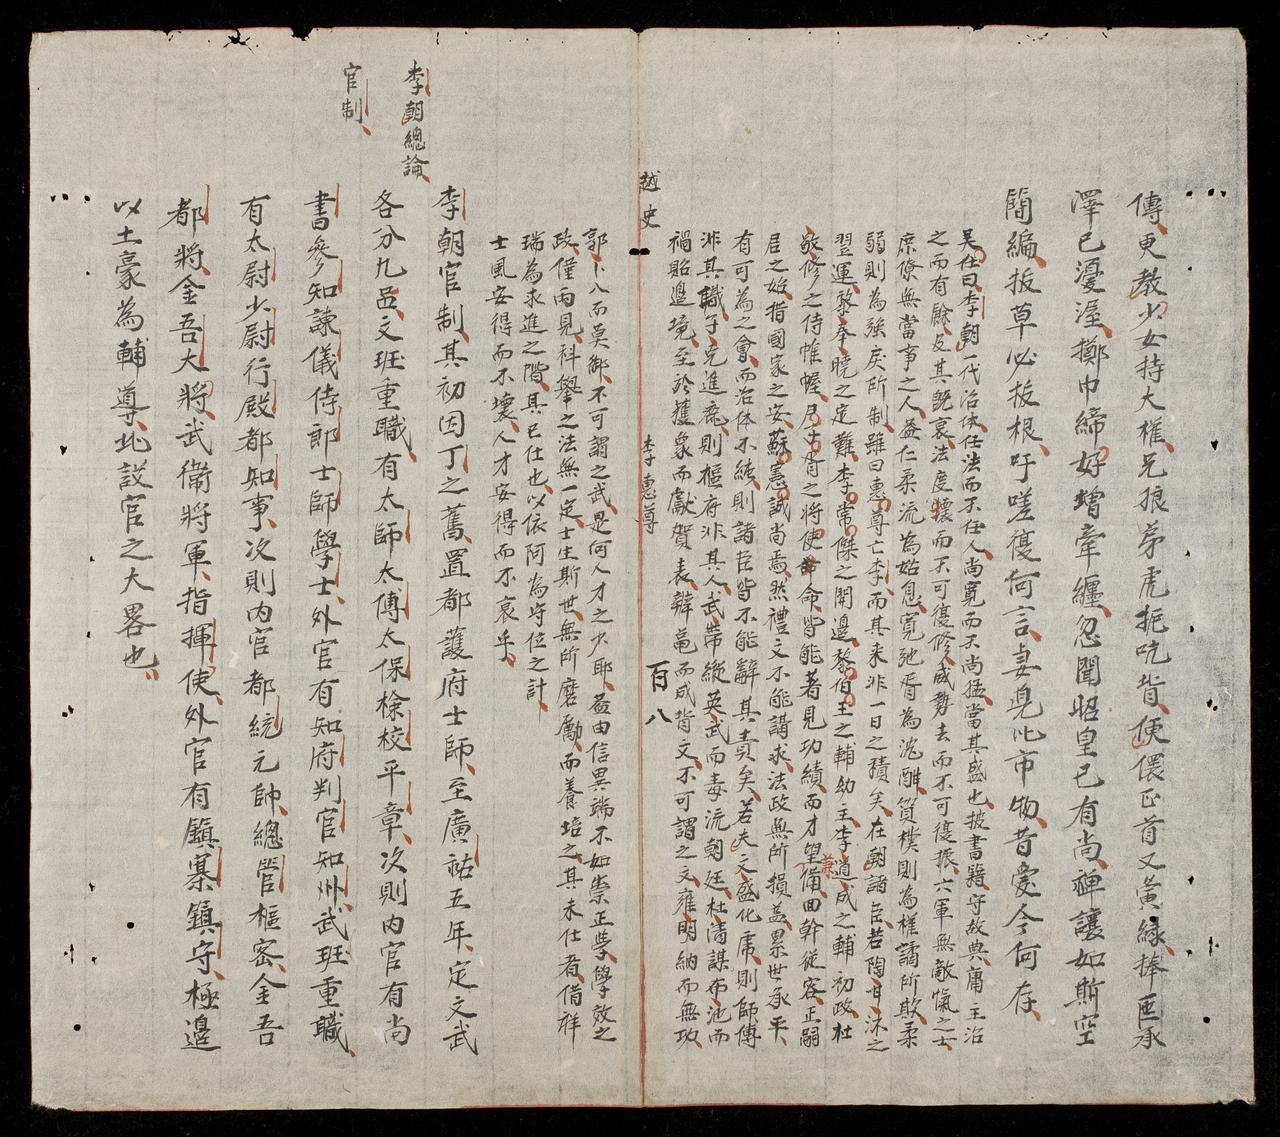 傳更教少女持大權兄狼弟虎扼吭背便偎正首又黃緣捧匜承
澤已憂渥擲巾締好增牽纏忽聞昭皇已有尚禪讓如斯空
簡編拔草必拔根吁嗟復何言妻兒化市物昔愛今何存
吳仕曰李朝一代治体任法而不任人尚寬而不尚猛當其盛也披書籍守故典庸主治
之而有餘及其旣衰法度壞而不可復修威勢去而不可復振六軍無敵愾之士
庶僚無當事之人益仁柔流為姑息寬弛胥為沈酣質樸則為權譎所欺柔
弱則為強戾所制雖曰惠尊亡李而其来非一日之積矣在朝諸臣若陶甘沐之
翌運黎奉曉之定難李常傑之開邊黎伯玉之輔幼主李道成之輔初政杜
敬修之侍帷幄尸十胥之將使命皆能著見功績而才望備曲幹從容正嗣
居之始措國家之安蘇憲誠尚焉然禮文不能講求法政無所損益累世承平
有可為之會而治体不純則諸臣皆不能辭其責矣若夫文盛化虎則師傅
非其職子克進龕則樞府非其人武帶縱英武而毒流朝廷杜清謀布池而
禍貽邊境至於獲象而獻賀表辯龜而成背文不可謂之文雍明納而無功
越史
李惠尊
百八
郭卜八而莫禦不可謂之武是何人才之少耶蓋由信異端不如崇正學學效之
政僅兩見科舉之法無一定士生斯世無所磨勵而養培之其未仕者借祥
瑞為求進之階其已仕也以依阿為守位之計
士風安得而不壞人才安得而不衰乎
李朝總論
官制
李朝官制其初因丁之舊置都護府士師至廣祐五年定文武
各分九品文班重職有太師太傅太保檢校平章次則內官有尚
書參知諫儀侍郎士師學士外官有知府判官知州武班重職
有太尉少尉行殿都知事次則內官都統元帥總管樞密金吾
都將金吾大將武衛將軍指揮使外官有鎭寨鎮守極邊
以土豪為輔導此設官之大畧也